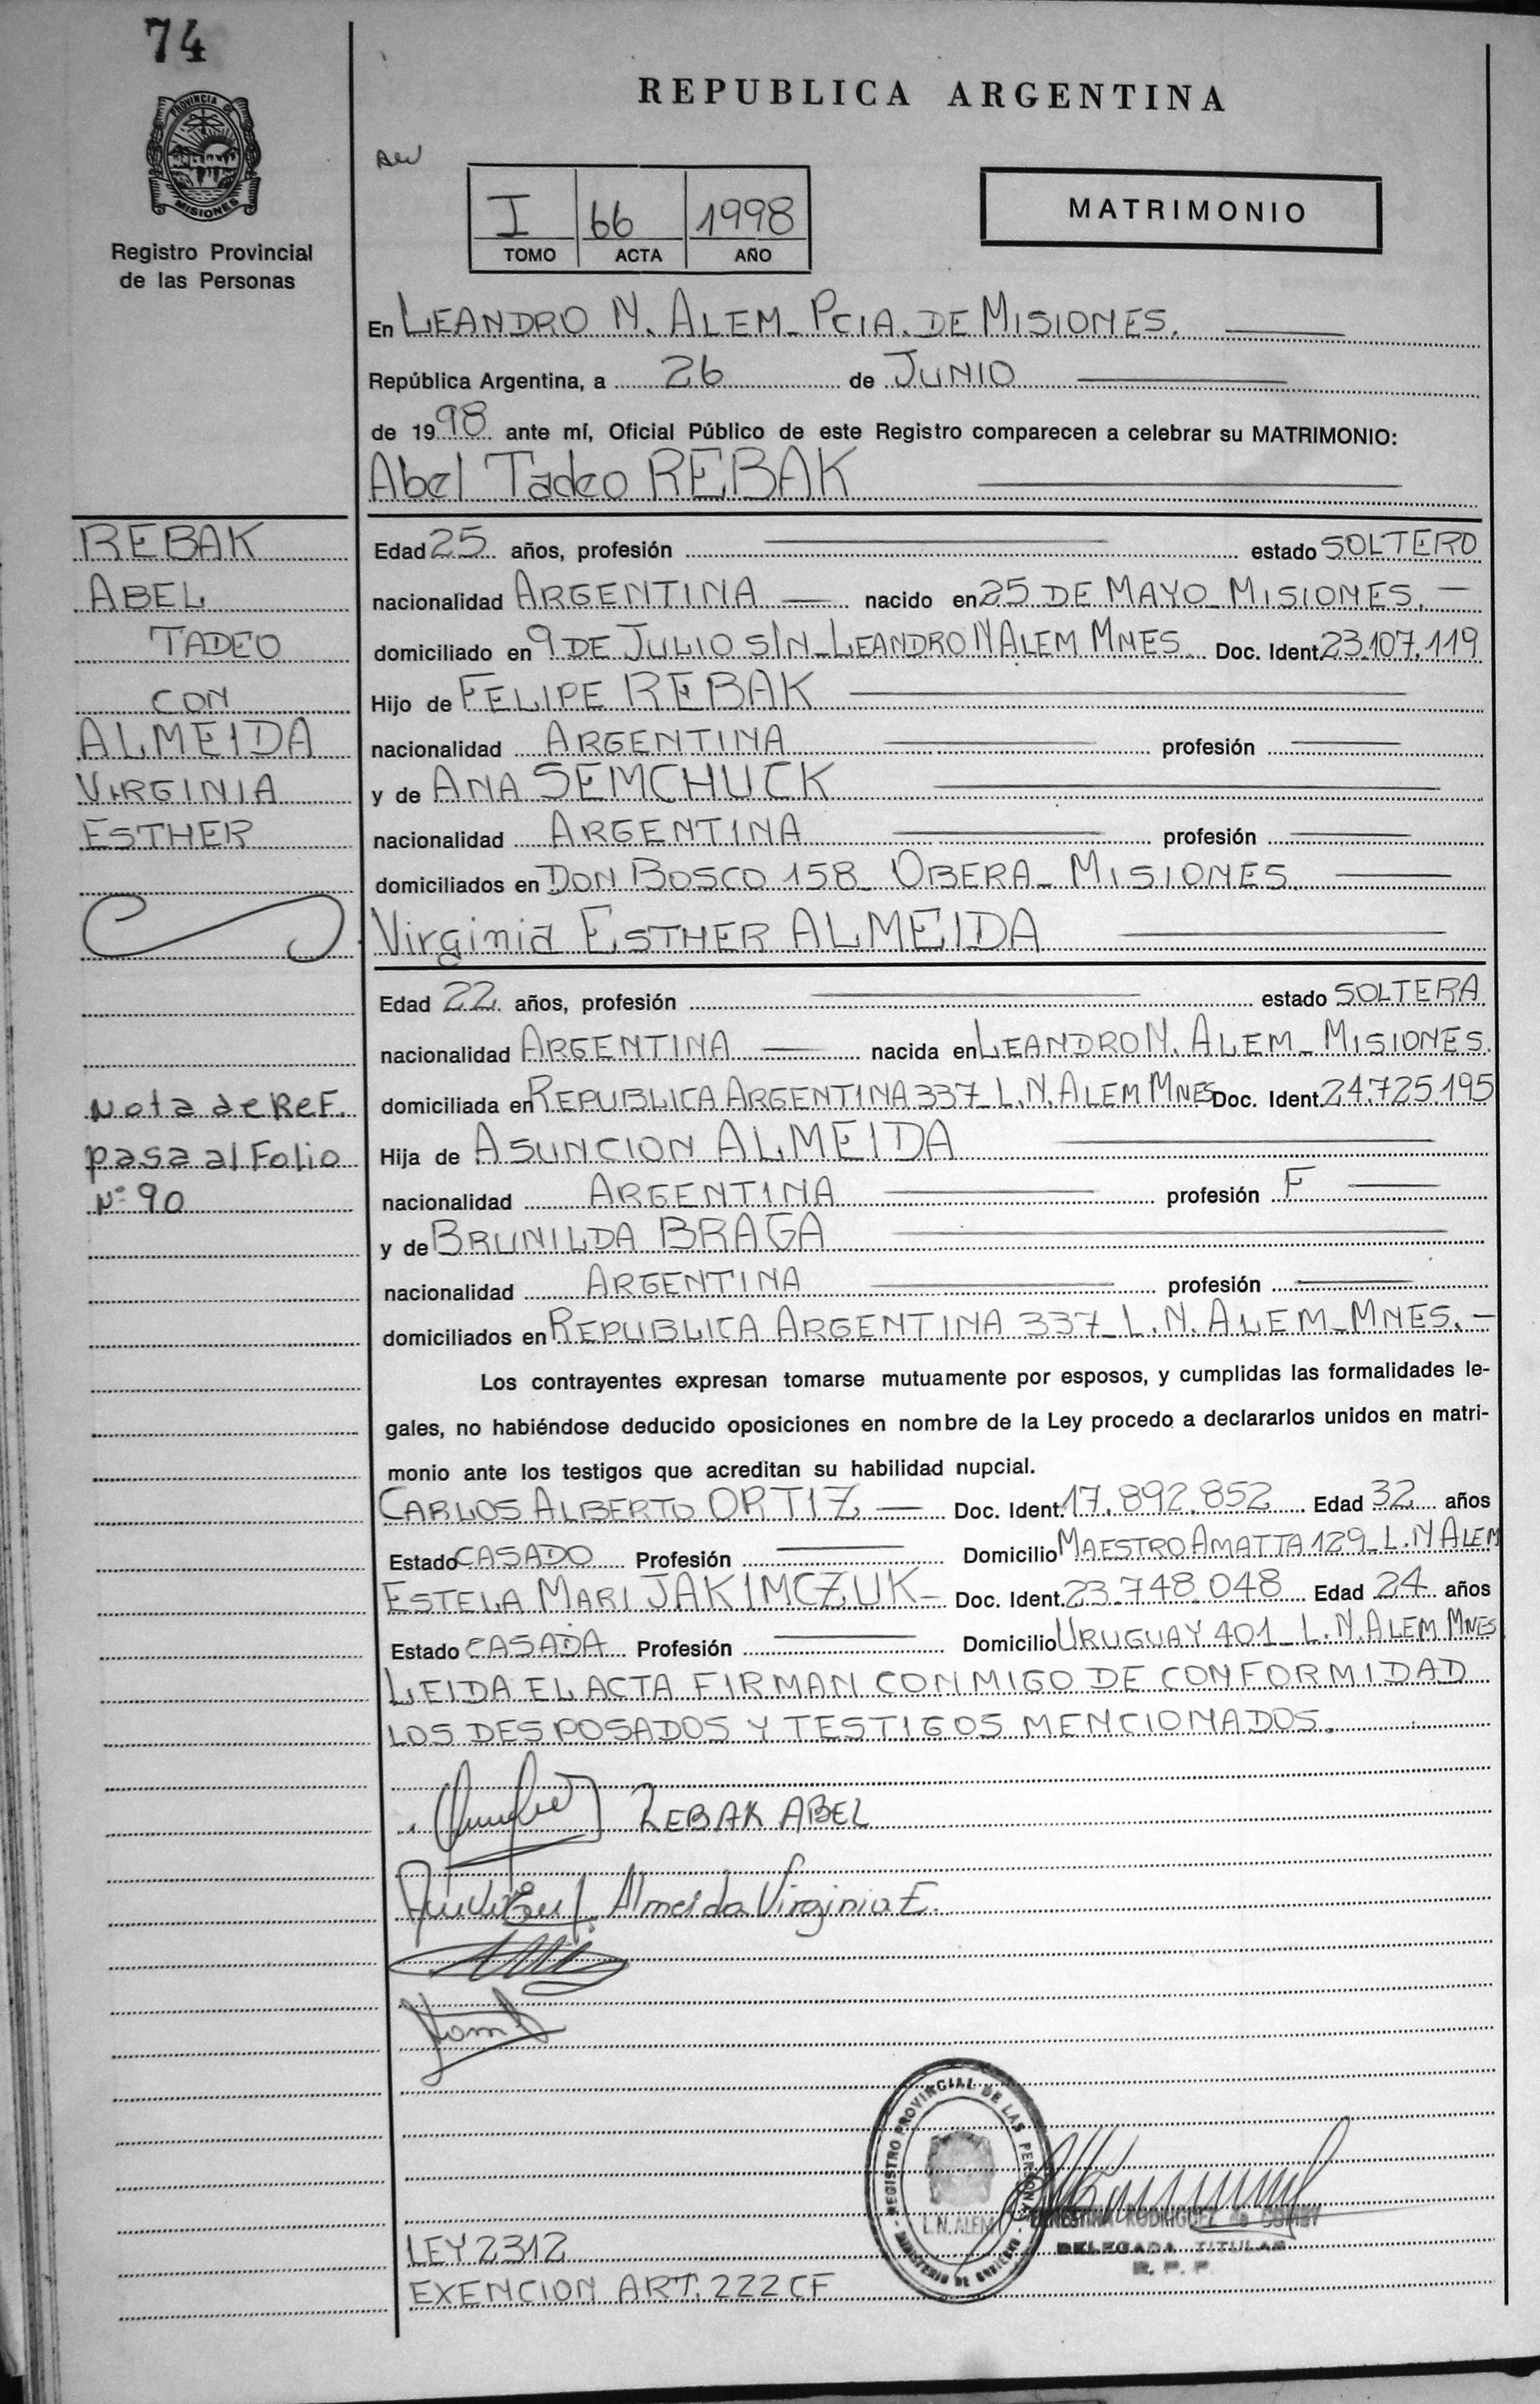 74
REPUBLICA ARGENTINA
PROVINCIA DE
MISIONES
Registro Provincial
de las Personas
I 66 1998
TOMO ACTA AÑO
MATRIMONIO
En LEANDRO N. ALEM_ PCIA. DE MISIONES.
República Argentina, a 26 de JUNIO
de 1998 ante mí, Oficial Público de este Registro comparecen a celebrar su MATRIMONIO:
Abel Tadeo REBAK
REBAK
ABEL
TADEO
CON
ALMEIDA
VIRGINIA
ESTHER
Edad 25 años, profesión estado SOLTERO
nacionalidad ARGENTINA nacido en 25 DE MAYO_MISIONES.
domiciliado en 9 DE JULIO S/N_LEANDRO N ALEM MNES. Doc. Ident. 23.107.119
Hijo de FELIPE REBAK
nacionalidad ARGENTINA profesión
y de ANA SEMCHUCK
nacionalidad ARGENTINA profesión
domiciliados en DON BOSCO 158_ OBERA_ MISIONES.
Virginia ESTHER ALMEIDA
Edad 22 años, profesión estado SOLTERA
nacionalidad ARGENTINA nacida en LEANDRO N. ALEM_ MISIONES.
domiciliada en REPUBLICA ARGENTINA 337_L.N.ALEM MNES Doc. Ident. 24.725.195
Hija de ASUNCION ALMEIDA
nacionalidad ARGENTINA profesión F
y de BRUNILDA BRAGA
nacionalidad ARGENTINA profesión
domiciliados en REPUBLICA ARGENTINA 337_L.N.ALEM_MNES.-
Nota de Ref.
pasa al Folio
Nº 90
Los contrayentes expresan tomarse mutuamente por esposos, y cumplidas las formalidades le-
gales, no habiéndose deducido oposiciones en nombre de la Ley procedo a declararlos unidos en matri-
monio ante los testigos que acreditan su habilidad nupcial.
CARLOS ALBERTO ORTIZ Doc. Ident. 17.892.852 Edad 32 años
Estado CASADO Profesión Domicilio MAESTRO AMATTA 129_L.N ALEM
ESTELA MARI JAKIMCZUK Doc. Ident. 23.748.048 Edad 24 años
Estado CASADA Profesión Domicilio URUGUAY 401_L.N.ALEM MNES
LEIDA EL ACTA FIRMAN CONMIGO DE CONFORMIDAD
LOS DESPOSADOS Y TESTIGOS MENCIONADOS.
REBAK ABEL
Almeida Virginia E.
REGISTRO PROVINCIAL DE LAS PERSONAS
L.N. ALEM
MINISTERIO DE GOBIERNO
RODRIGUEZ
DELEGADA TITULAR
R. P. P.
LEY 2312
EXENCION ART. 222 CF